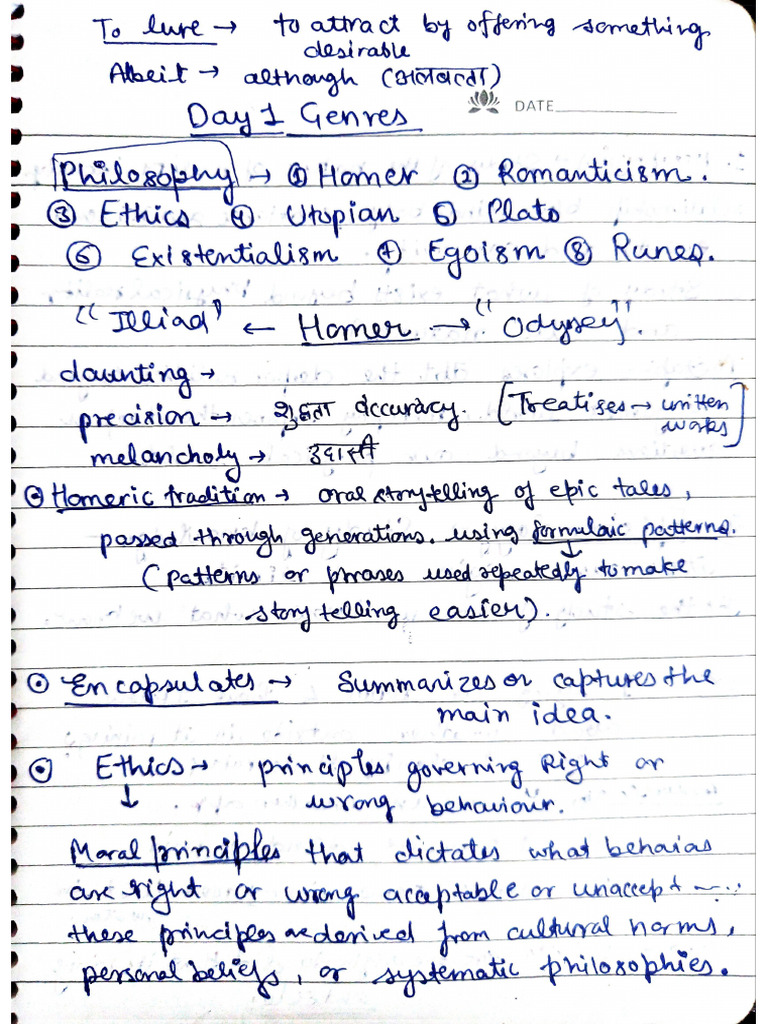 To lure → to attract by offering something
desirable
Albeit → although (अलबत्ता)
DATE
Day 1 Genres
Philosophy → ① Homer ② Romanticism.
③ Ethics ④ Utopian ⑤ Plato
⑥ Existentialism ⑦ Egoism ⑧ Runes.
"Illiad" ← Homer → "Odyssey".
daunting →
precision → शुद्धता accuracy. [Treatises → written
works]
melancholy → उदासी
Homeric tradition → oral storytelling of epic tales,
passed through generations. using formulaic patterns.
↓
(patterns or phrases used repeatedly to make
storytelling easier).
Encapsulates → Summarizes or captures the
main idea.
Ethics → principles governing Right or
↓ wrong behaviour.
Moral principles that dictates what behaias
are right or wrong acceptable or unaccept
these principles are derived from cultural norms,
personal beliefs, or systematic philosophies.